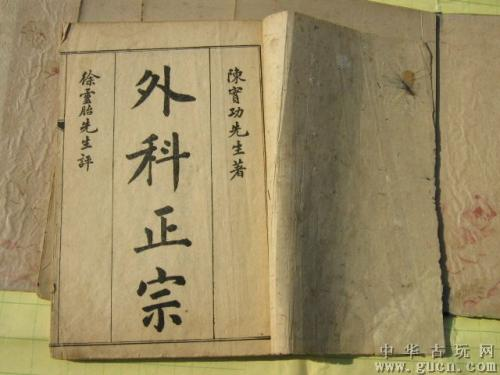 陳實功先生著
外科正宗
徐靈胎先生評
中华古玩网
www.gucn.com